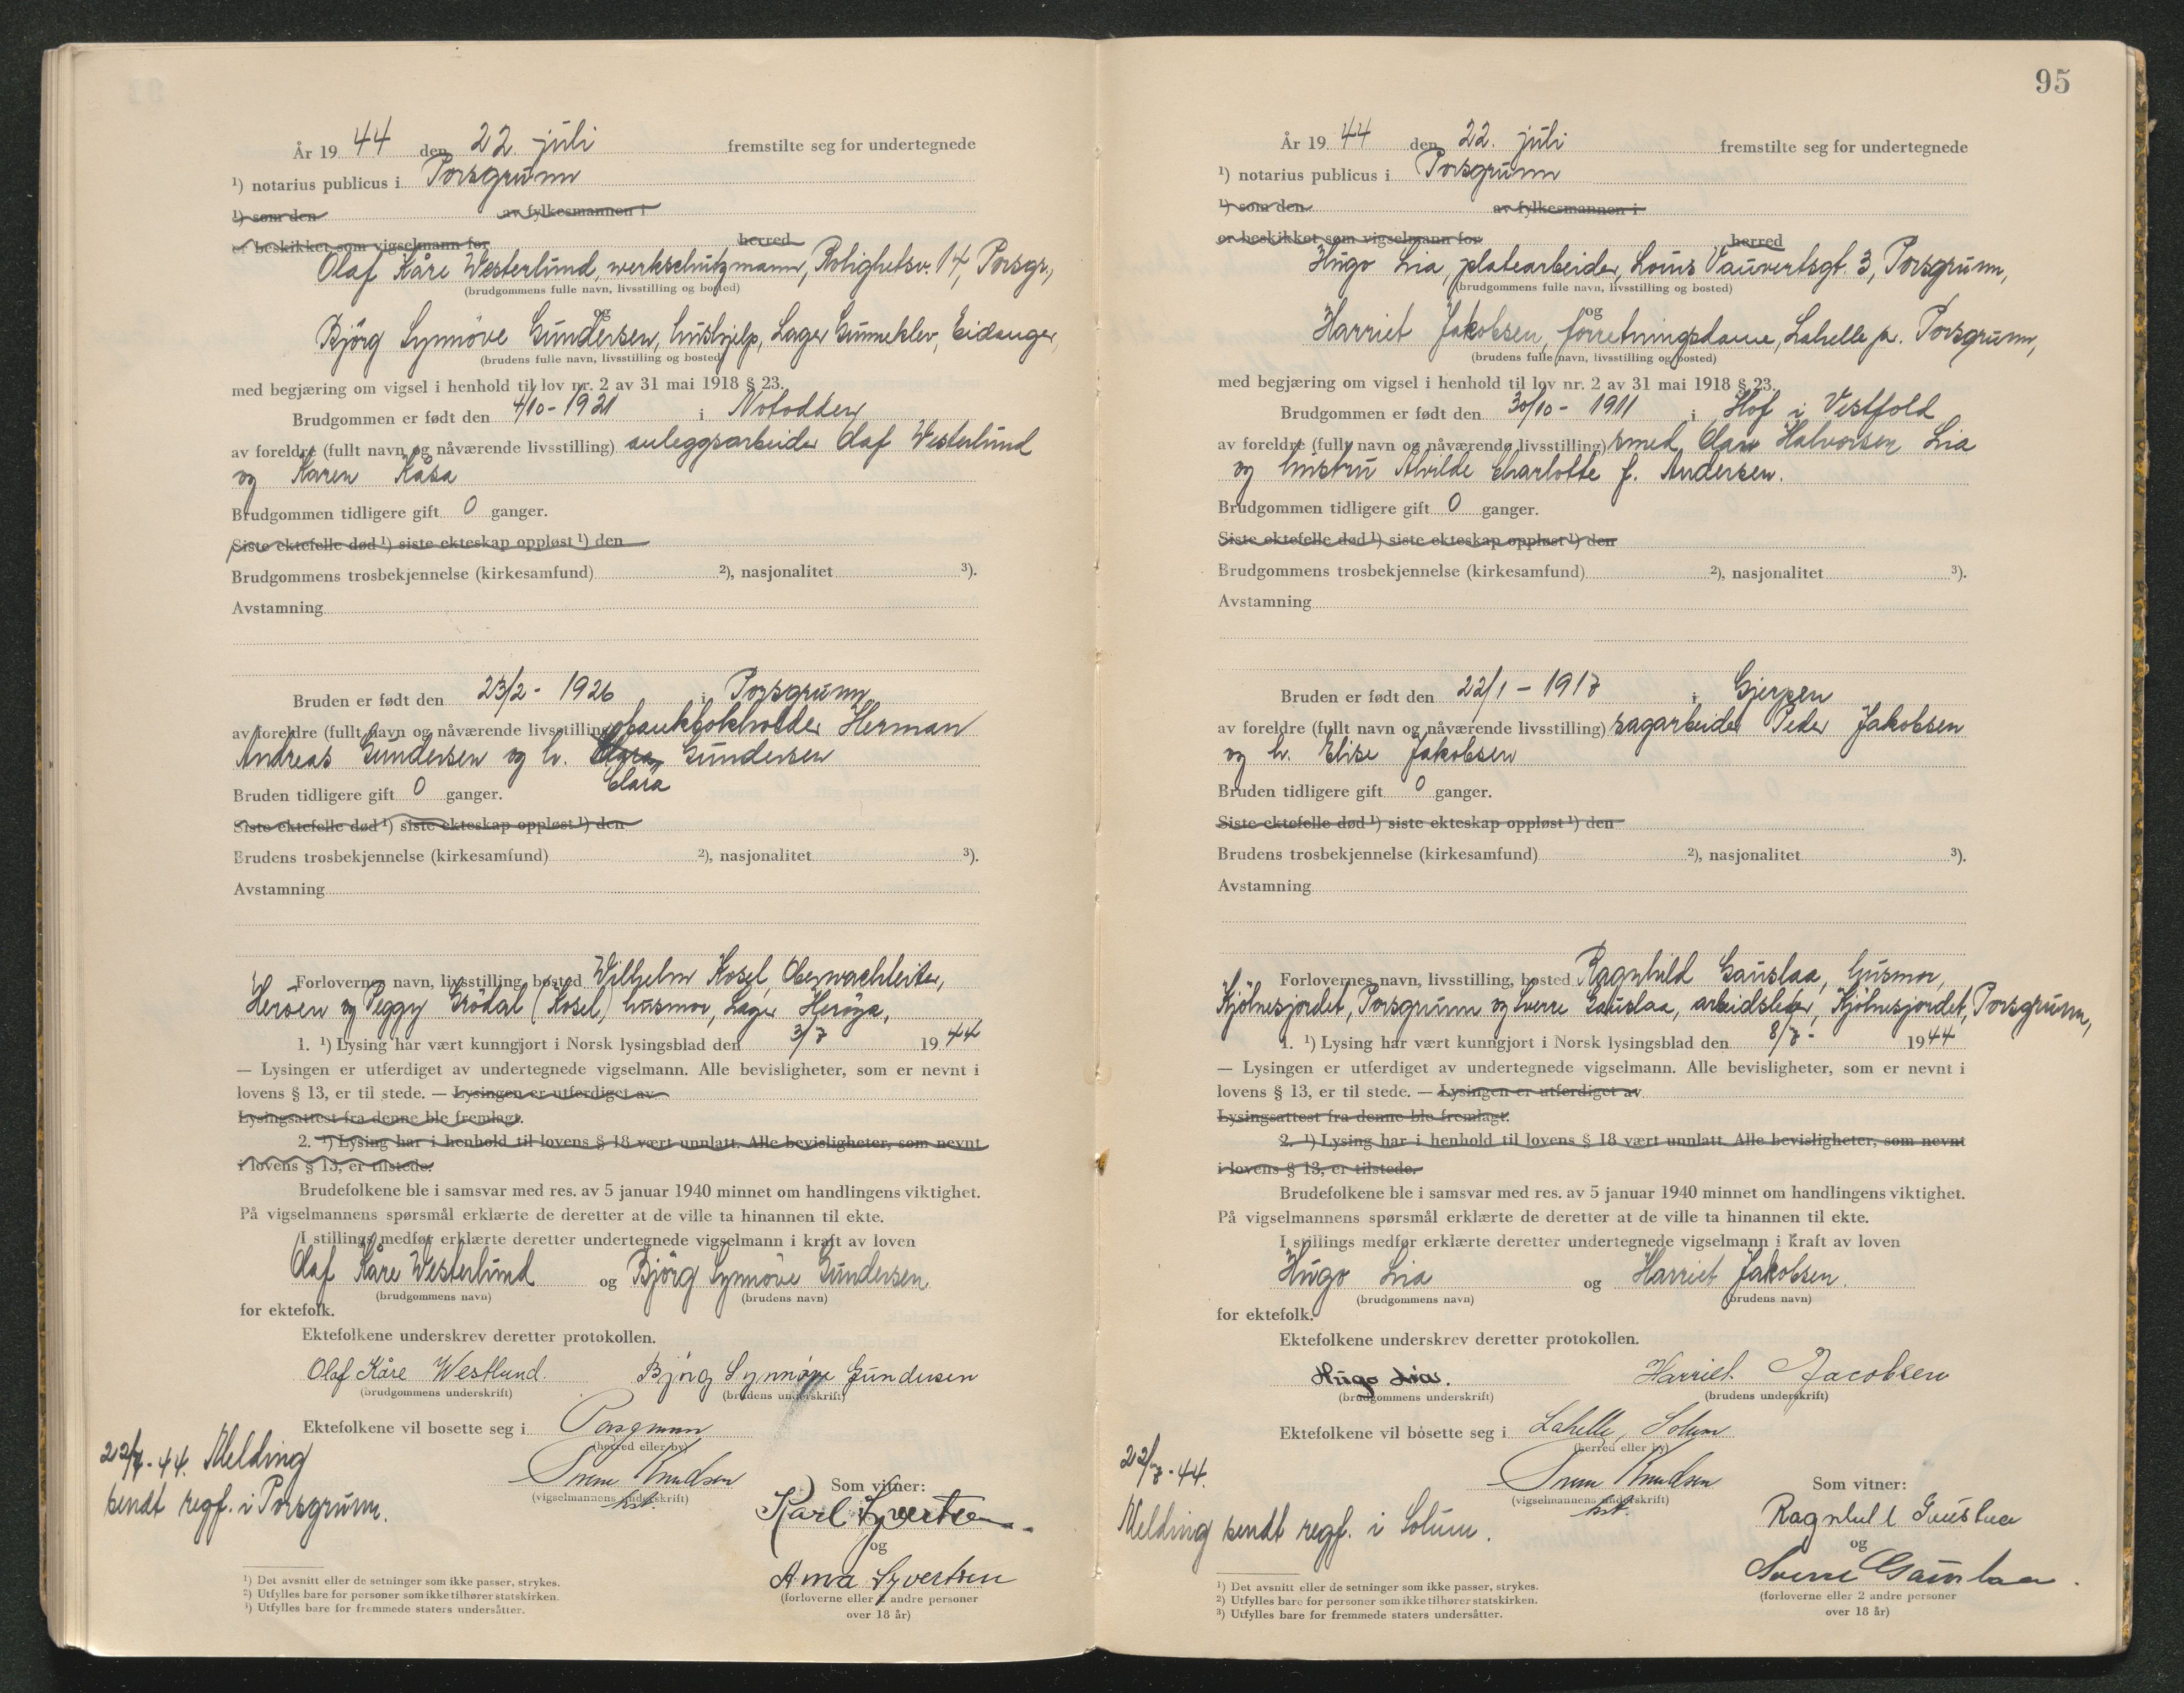 År 19 44 den 22. juli fremstilte seg for undertegnede
¹) notarius publicus i Porsgrunn
¹) som den av fylkesmannen i
er beskikket som vigselmann for herred
Olaf Kåre Westerlund, werkschutzmann, Rolighetsv. 14, Porsgr.,
(brudgommens fulle navn, livsstilling og bosted)
og
Bjørg Synnøve Gundersen, hushjelp, Lager Gunneklev, Eidanger,
(brudens fulle navn, livsstilling og bosted)
med begjæring om vigsel i henhold til lov nr. 2 av 31 mai 1918 § 23.
Brudgommen er født den 4/10 - 1921 i Notodden
av foreldre (fullt navn og nåværende livsstilling) anleggsarbeider Olaf Westerlund
og Karen Kåsa
Brudgommen tidligere gift 0 ganger.
Siste ektefelle død ¹) siste ekteskap oppløst ¹) den
Brudgommens trosbekjennelse (kirkesamfund) ²), nasjonalitet ³).
Avstamning
Bruden er født den 23/2 - 1926 i Porsgrunn
av foreldre (fullt navn og nåværende livsstilling) bankbokholder Herman
Andreas Gundersen og h. Gundersen
Clara
Bruden tidligere gift 0 ganger.
Siste ektefelle død ¹) siste ekteskap oppløst ¹) den
Brudens trosbekjennelse (kirkesamfund) ²), nasjonalitet ³).
Avstamning
Forlovernes navn, livsstilling, bosted Wilhelm Kosel, Oberwachleiter,
Herøen og Peggy Grödal (Kosel) husmor, Lager Herøya,
1. ¹) Lysing har vært kunngjort i Norsk lysingsblad den 3/7 19 44
— Lysingen er utferdiget av undertegnede vigselmann. Alle bevisligheter, som er nevnt i
lovens § 13, er til stede. — Lysingen er utferdiget av
Lysingsattest fra denne ble fremlagt.
2. ¹) Lysing har i henhold til lovens § 18 vært unnlatt. Alle bevisligheter, som nevnt
i lovens § 13, er tilstede.
Brudefolkene ble i samsvar med res. av 5 januar 1940 minnet om handlingens viktighet.
På vigselmannens spørsmål erklærte de deretter at de ville ta hinannen til ekte.
I stillings medfør erklærte deretter undertegnede vigselmann i kraft av loven
Olaf Kåre Westerlund og Bjørg Synnøve Gundersen
(brudgommens navn) (brudens navn)
for ektefolk.
Ektefolkene underskrev deretter protokollen.
Olaf Kåre Westlund. Bjørg Synnøve Gundersen
(brudgommens underskrift) (brudens underskrift)
Ektefolkene vil bosette seg i Porsgrunn
(herred eller by)
22/7 - 44. Melding
sendt regf. i Porsgrunn.
Knudsen
(vigselmannens underskrift)
hst.
Som vitner:
Karl Syvertsen
og
Anna Syvertsen
(forloverne eller 2 andre personer
over 18 år)
¹) Det avsnitt eller de setninger som ikke passer, strykes.
²) Utfylles bare for personer som ikke tilhører statskirken.
³) Utfylles bare for fremmede staters undersåtter.
95
År 19 44 den 22. juli fremstilte seg for undertegnede
¹) notarius publicus i Porsgrunn
¹) som den av fylkesmannen i
er beskikket som vigselmann for herred
Hugo Lia, platearbeider, Louis Vauvertsgt. 3, Porsgrunn,
(brudgommens fulle navn, livsstilling og bosted)
og
Harriet Jakobsen, forretningsdame, Lahelle pr. Porsgrunn,
(brudens fulle navn, livsstilling og bosted)
med begjæring om vigsel i henhold til lov nr. 2 av 31 mai 1918 § 23.
Brudgommen er født den 30/10 - 1911 i Hof i Vestfold
av foreldre (fullt navn og nåværende livsstilling) smed Olav Halvorsen Lia
og hustru Alvilde Charlotte f. Andersen.
Brudgommen tidligere gift 0 ganger.
Siste ektefelle død ¹) siste ekteskap oppløst ¹) den
Brudgommens trosbekjennelse (kirkesamfund) ²), nasjonalitet ³).
Avstamning
Bruden er født den 22/1 - 1917 i Gjerpen
av foreldre (fullt navn og nåværende livsstilling) sagarbeider Peder Jakobsen
og h. Elise Jakobsen
Bruden tidligere gift 0 ganger.
Siste ektefelle død ¹) siste ekteskap oppløst ¹) den
Brudens trosbekjennelse (kirkesamfund) ²), nasjonalitet ³).
Avstamning
Forlovernes navn, livsstilling, bosted Ragnhild Gauslaa, husmor,
Kjølnesjordet, Porsgrunn og Sverre Gauslaa, arbeidsleder, Kjølnesjordet, Porsgrunn,
1. ¹) Lysing har vært kunngjort i Norsk lysingsblad den 8/7 - 19 44
— Lysingen er utferdiget av undertegnede vigselmann. Alle bevisligheter, som er nevnt i
lovens § 13, er til stede. — Lysingen er utferdiget av
Lysingsattest fra denne ble fremlagt.
2. ¹) Lysing har i henhold til lovens § 18 vært unnlatt. Alle bevisligheter, som nevnt
i lovens § 13, er tilstede.
Brudefolkene ble i samsvar med res. av 5 januar 1940 minnet om handlingens viktighet.
På vigselmannens spørsmål erklærte de deretter at de ville ta hinannen til ekte.
I stillings medfør erklærte deretter undertegnede vigselmann i kraft av loven
Hugo Lia og Harriet Jakobsen.
(brudgommens navn) (brudens navn)
for ektefolk.
Ektefolkene underskrev deretter protokollen.
Hugo Lia. Harriet Jacobsen
(brudgommens underskrift) (brudens underskrift)
Ektefolkene vil bosette seg i Lahelle, Solum
(herred eller by)
22/7 - 44.
Melding sendt regf. i Solum.
Knudsen
(vigselmannens underskrift)
hst.
Som vitner:
Ragnhild Gauslaa
og
Sverre Gauslaa.
(forloverne eller 2 andre personer
over 18 år)
¹) Det avsnitt eller de setninger som ikke passer, strykes.
²) Utfylles bare for personer som ikke tilhører statskirken.
³) Utfylles bare for fremmede staters undersåtter.